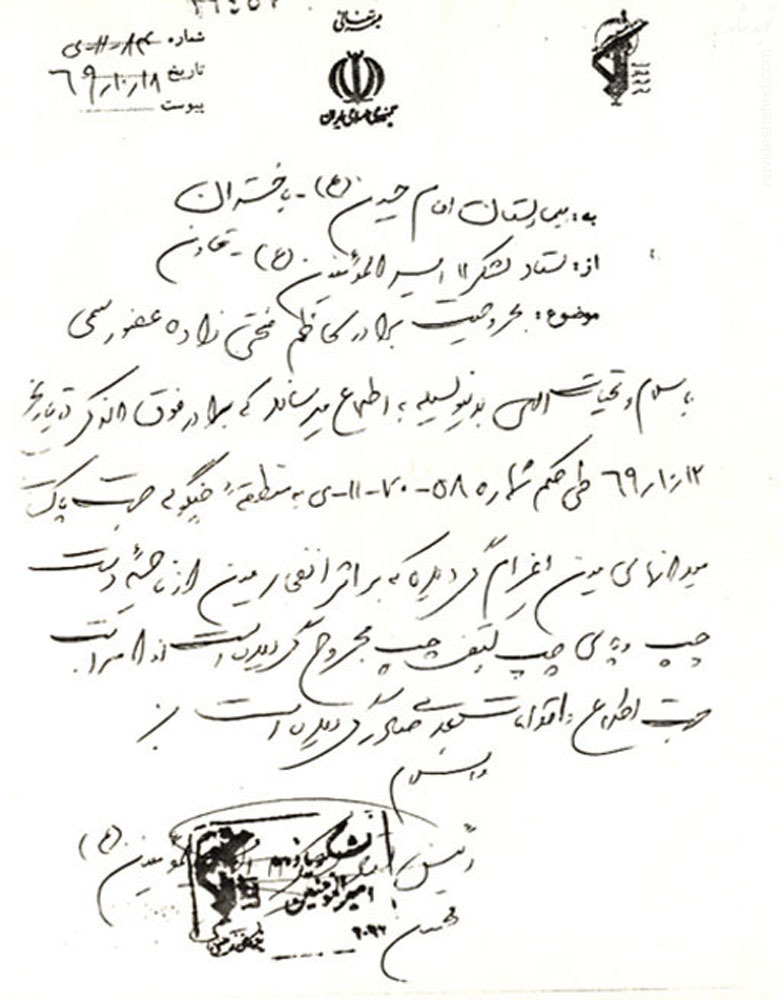 بسمه تعالی
جمهوری اسلامی ایران
شماره
تاریخ ۶۹/۱۰/۱۸
پیوست
به: بیمارستان امام حسین (ع) - باختران
از: ستاد لشکر ۱۱ امیرالمؤمنین (ع) - تعاون
موضوع: مجروحیت برادر کاظم فتحی زاده عضو رسمی
با سلام و تحیات الهی بدینوسیله به اطلاع میرساند که برادر فوق الذکر در تاریخ
۶۹/۱۰/۱۲ طی حکم شماره ۵۸-۷۰-۱۱-س به منطقه جهت پاک
میدانهای مین اعزام گردیده که بر اثر انفجار مین از ناحیه دست
چپ و پای چپ کتف چپ مجروح گردیده است لذا مراتب
جهت اطلاع و اقدامات بعدی صادر گردیده است
والسلام
رئیس
امیرالمؤمنین
navideshahed.com